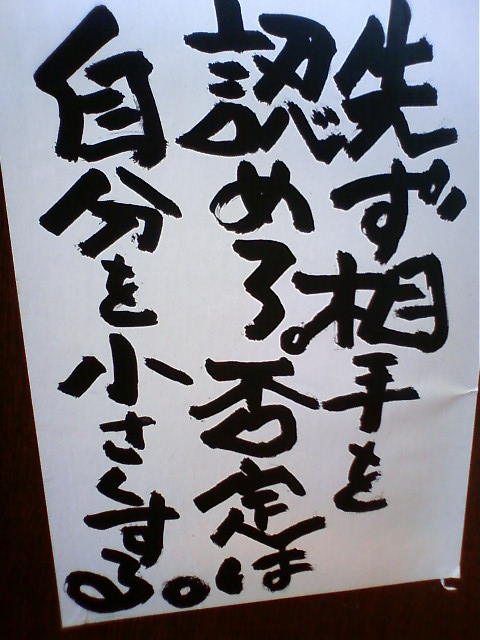 先ず相手を
認めろ。否定は
自分を小さくする。